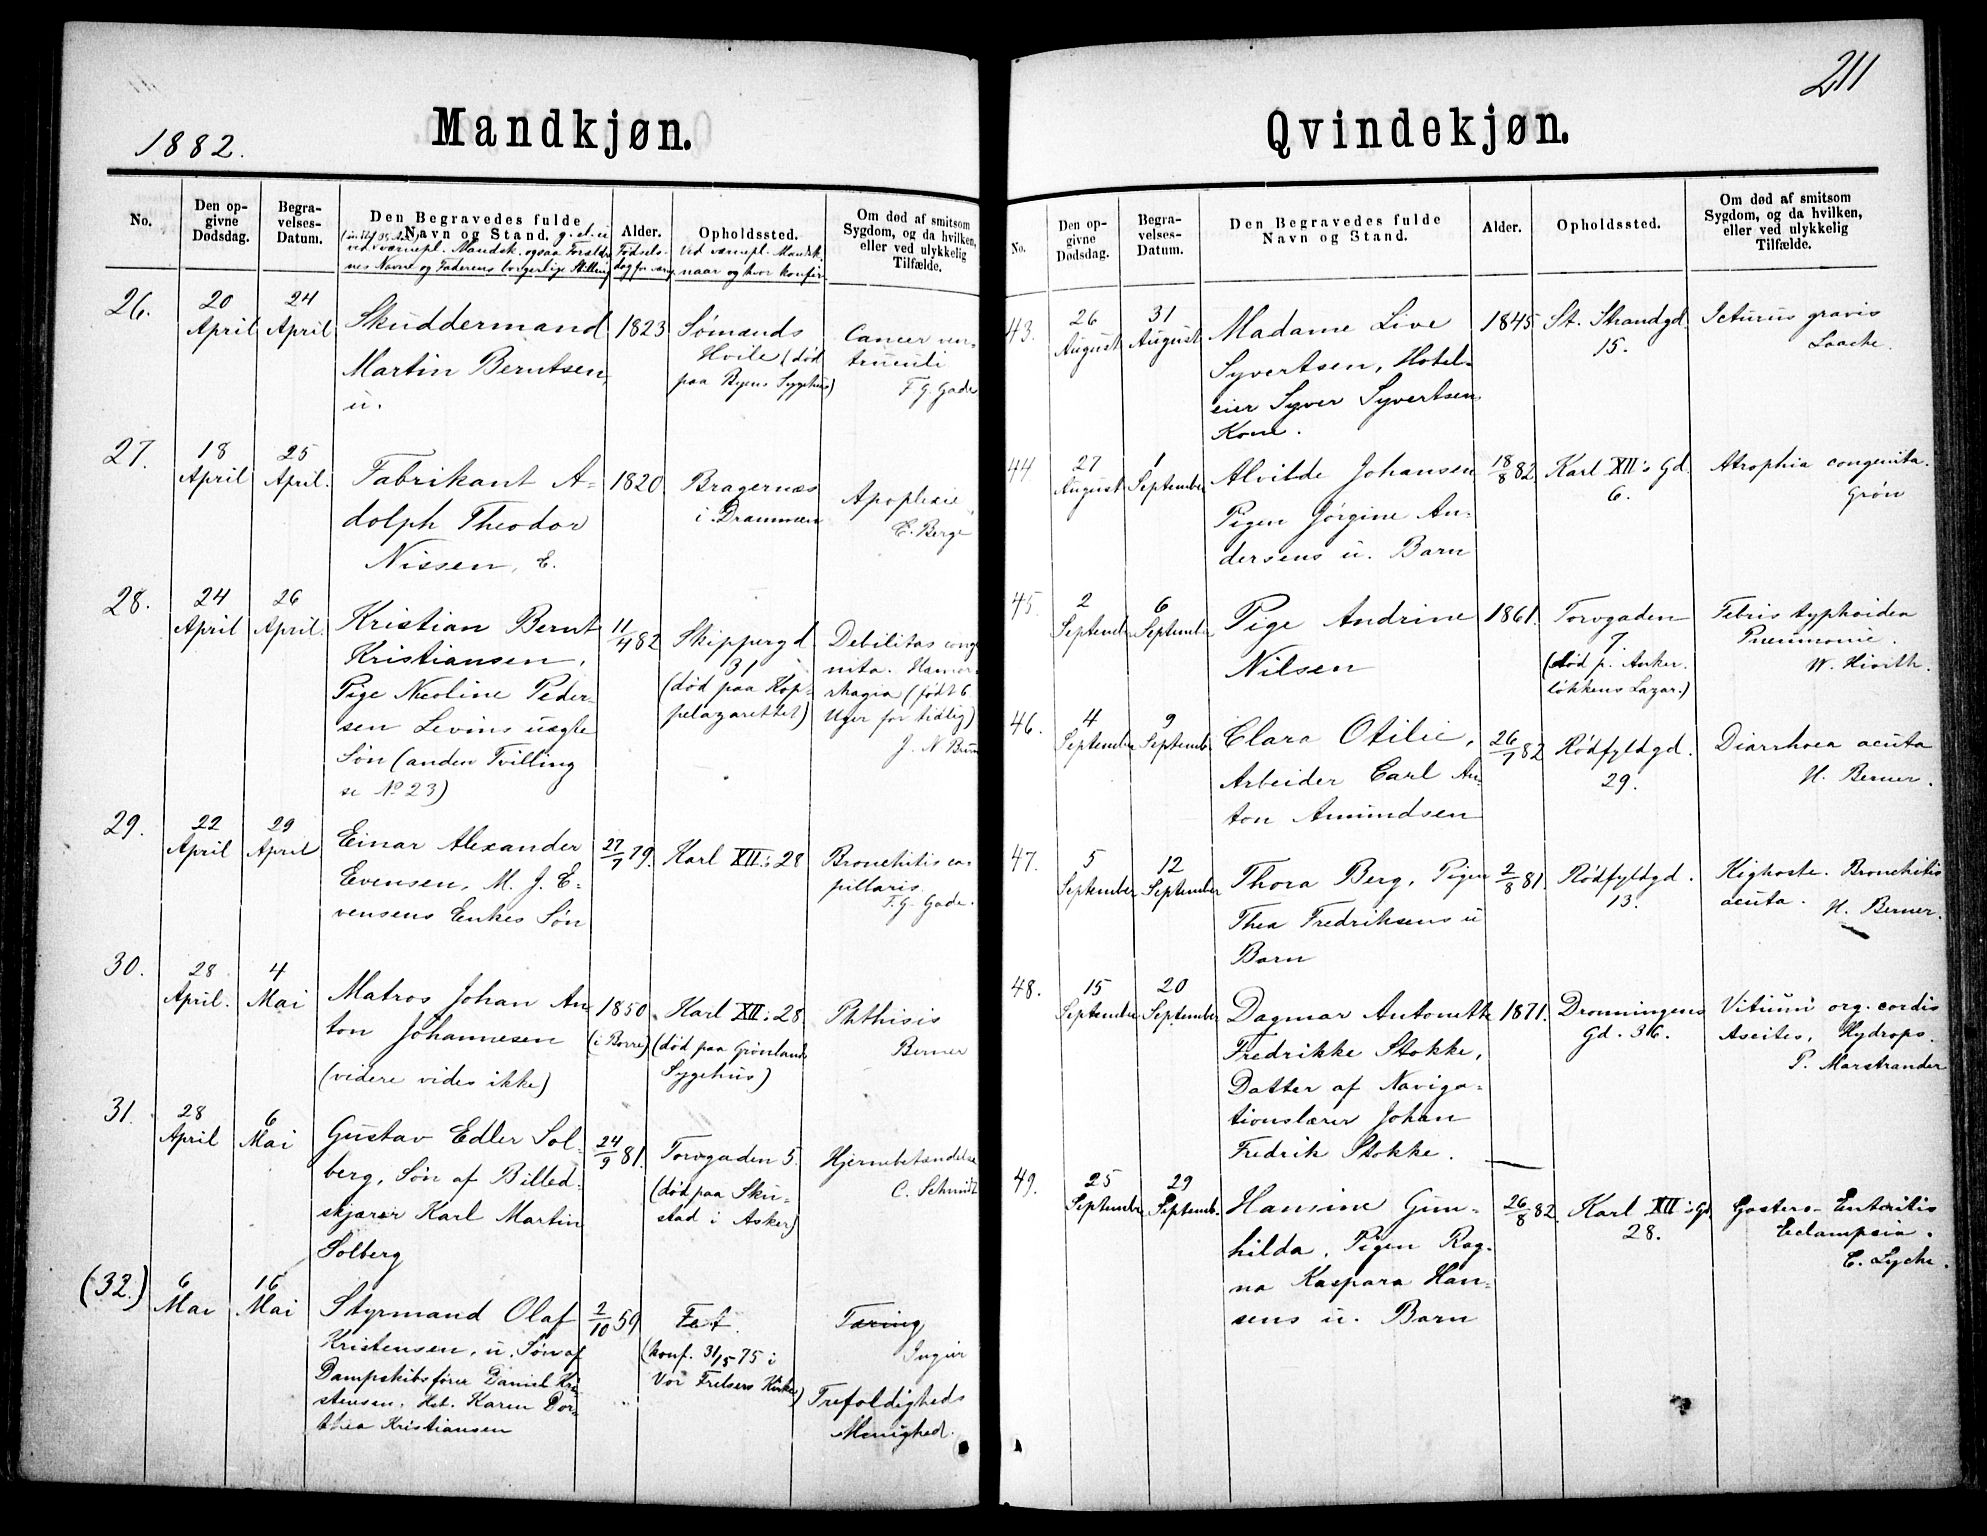 1882.
Mandkjøn.
No.
Den opgivne Dødsdag.
Begravelses-Datum.
Den Begravedes fulde Navn og Stand.
Alder.
Opholdssted.
Om død af smitsom Sygdom, og da hvilken, eller ved ulykkelig Tilfælde.
26.
20 April
24 April
Skuddermand
Martin Berntsen,
u.
1823
Sømands
Hvile (død
paa Byens Sygehus)
Cancer ven-
triculi
F. G. Gade
27.
18 April
25 April.
Fabrikant A-
dolph Theodor
Nissen, E.
1820
Bragernæs
i Drammen
Apoplexie
E. Berge
28.
24 April
26 April.
Kristian Bernt
Kristiansen,
Pige Nicoline Peder-
sen Levins uægte
Søn (anden Tvilling
se No 23)
11/4 82
Skippergd
31
(død paa Kop-
pelazarettet)
Debilitas conge
nita. Hæmor-
rhagia (født 6
Uger for tidlig)
29.
22 April
29 April
Einar Alexander
Evensen, M. J. E-
vensens Enkes Søn
27/7 79.
Karl XII: 28
Bronchitis ca-
pillaris.
F. G. Gade.
30.
28 April.
4 Mai
Matros Johan An-
ton Johannesen
(videre vides ikke)
1850
(i Borre)
Karl XII: 28
(død paa Grønlands
Sygehus)
Phthisis
Berner
31.
28 April
6 Mai
Gustav Edler Sol-
berg, Søn af Billed-
skjærer Karl Martin
Solberg
24/9 81.
Torvgaden 5.
(død paa Sku-
stad i Asker)
Hjernebetændelse
C. Schmidt
(32.)
6 Mai
16 Mai
Styrmand Olaf
Kristensen, u. Søn af
Dampskibsfører Daniel Kri-
stensen. Hst. Karen Dor-
thea Kristiansen
2/10 59
(konf. 31/5 75 i
Vor Frelsers Kirke)
Tæring
Trefoldigheds
Menighed.
211
Qvindekjøn.
No.
Den opgivne Dødsdag.
Begravelses-Datum.
Den Begravedes fulde Navn og Stand.
Alder.
Opholdssted.
Om død af smitsom Sygdom, og da hvilken, eller ved ulykkelig Tilfælde.
43.
26 August
31 August
Madame Live
Syvertsen, Hotel-
eier Syver Syvertsen
Kone.
1845
St. Strandgd.
15.
Icturus gravis
Laache.
44
27 August
1 September
Alvilde Johansen
Pigen Jørgine An-
dersens u. Barn
18/8 82
Karl XII's Gd.
6.
Atrophia congenita.
Grøn
45.
2 Septemb
6 September
Pige Andrine
Nilsen
1861.
Torvgaden
7.
(død p. Anker-
løkkens Lazar.)
Febris typhoidea
Pneumonie.
46.
4 September
9 Septemb.
Clara Otilie,
Arbeider Carl An-
ton Amundsen
26/7 82
Rødfyldgd.
29.
Diarrhoea acuta
H. Berner.
47.
5 September
12 September
Thora Berg, Pigen
Thea Fredriksens u
Barn
2/8 81.
Rødfyldgd.
13.
Kighoste. Bronchitis
acuta.
H. Berner.
48.
15 September
20 September
Dagmar Antonette
Fredrikke Stokke,
Datter af Naviga-
tionslærer Johan
Fredrik Stokke.
1871.
Dronningens
Gd. 36.
Vitium org. cordis
Ascites, Hydrops.
P. Marstrander
49.
25 September
29 Septemb.
Hansine Gun-
hilda, Pigen Rag-
na Kaspara Han-
sens u. Barn
26/8 82.
Karl XII's Gd.
28.
Gastero-Enteritis
Eclampsia.
E. Lyche.